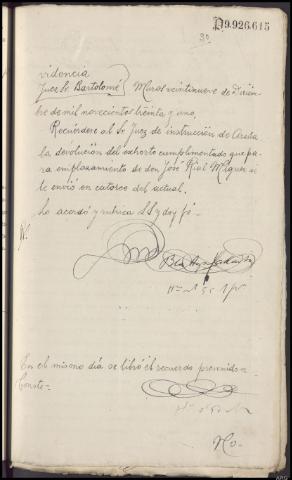 D9.926.615
30
videncia
Juez Sr Bartolomé } Muros veintinueve de Diciem-
bre de mil novecientos treinta y uno.
Recuérdese al Sr Juez de instrucción de
la devolución del exhorto cumplimentado que pa-
ra emplazamiento de don José Rial Miguens se
le envió en catorce del actual.
Lo acordó y rubrica SSª y doy fé.-
En el mismo día se libró el recuerdo prevenido=
Consta=
No.